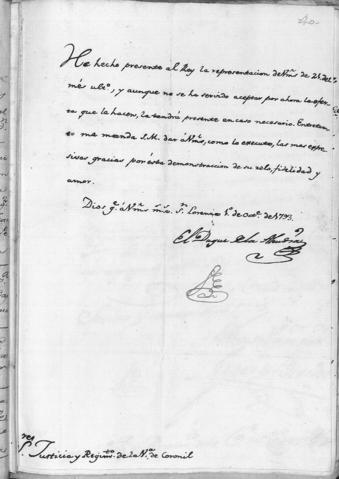 40.
He hecho presente al Rey la representacion de Vms de 24 del
més ult.º, y aunque no se ha servido aceptar por ahora la ofer
ta que la hacen, la tendrá presente en caso necesario. Entretan
to me manda S.M. dar á Vms, como lo executo, las mas expre
sivas gracias por ésta demonstracion de su zelo, fidelidad y
amor.
Dios g.e á Vms m.s a.s S.n Lorenzo 1.º de Oct.e de 1793.
El Duque de la Alcudia
S.res Justicia y Regim.to de la V.a de Coronil